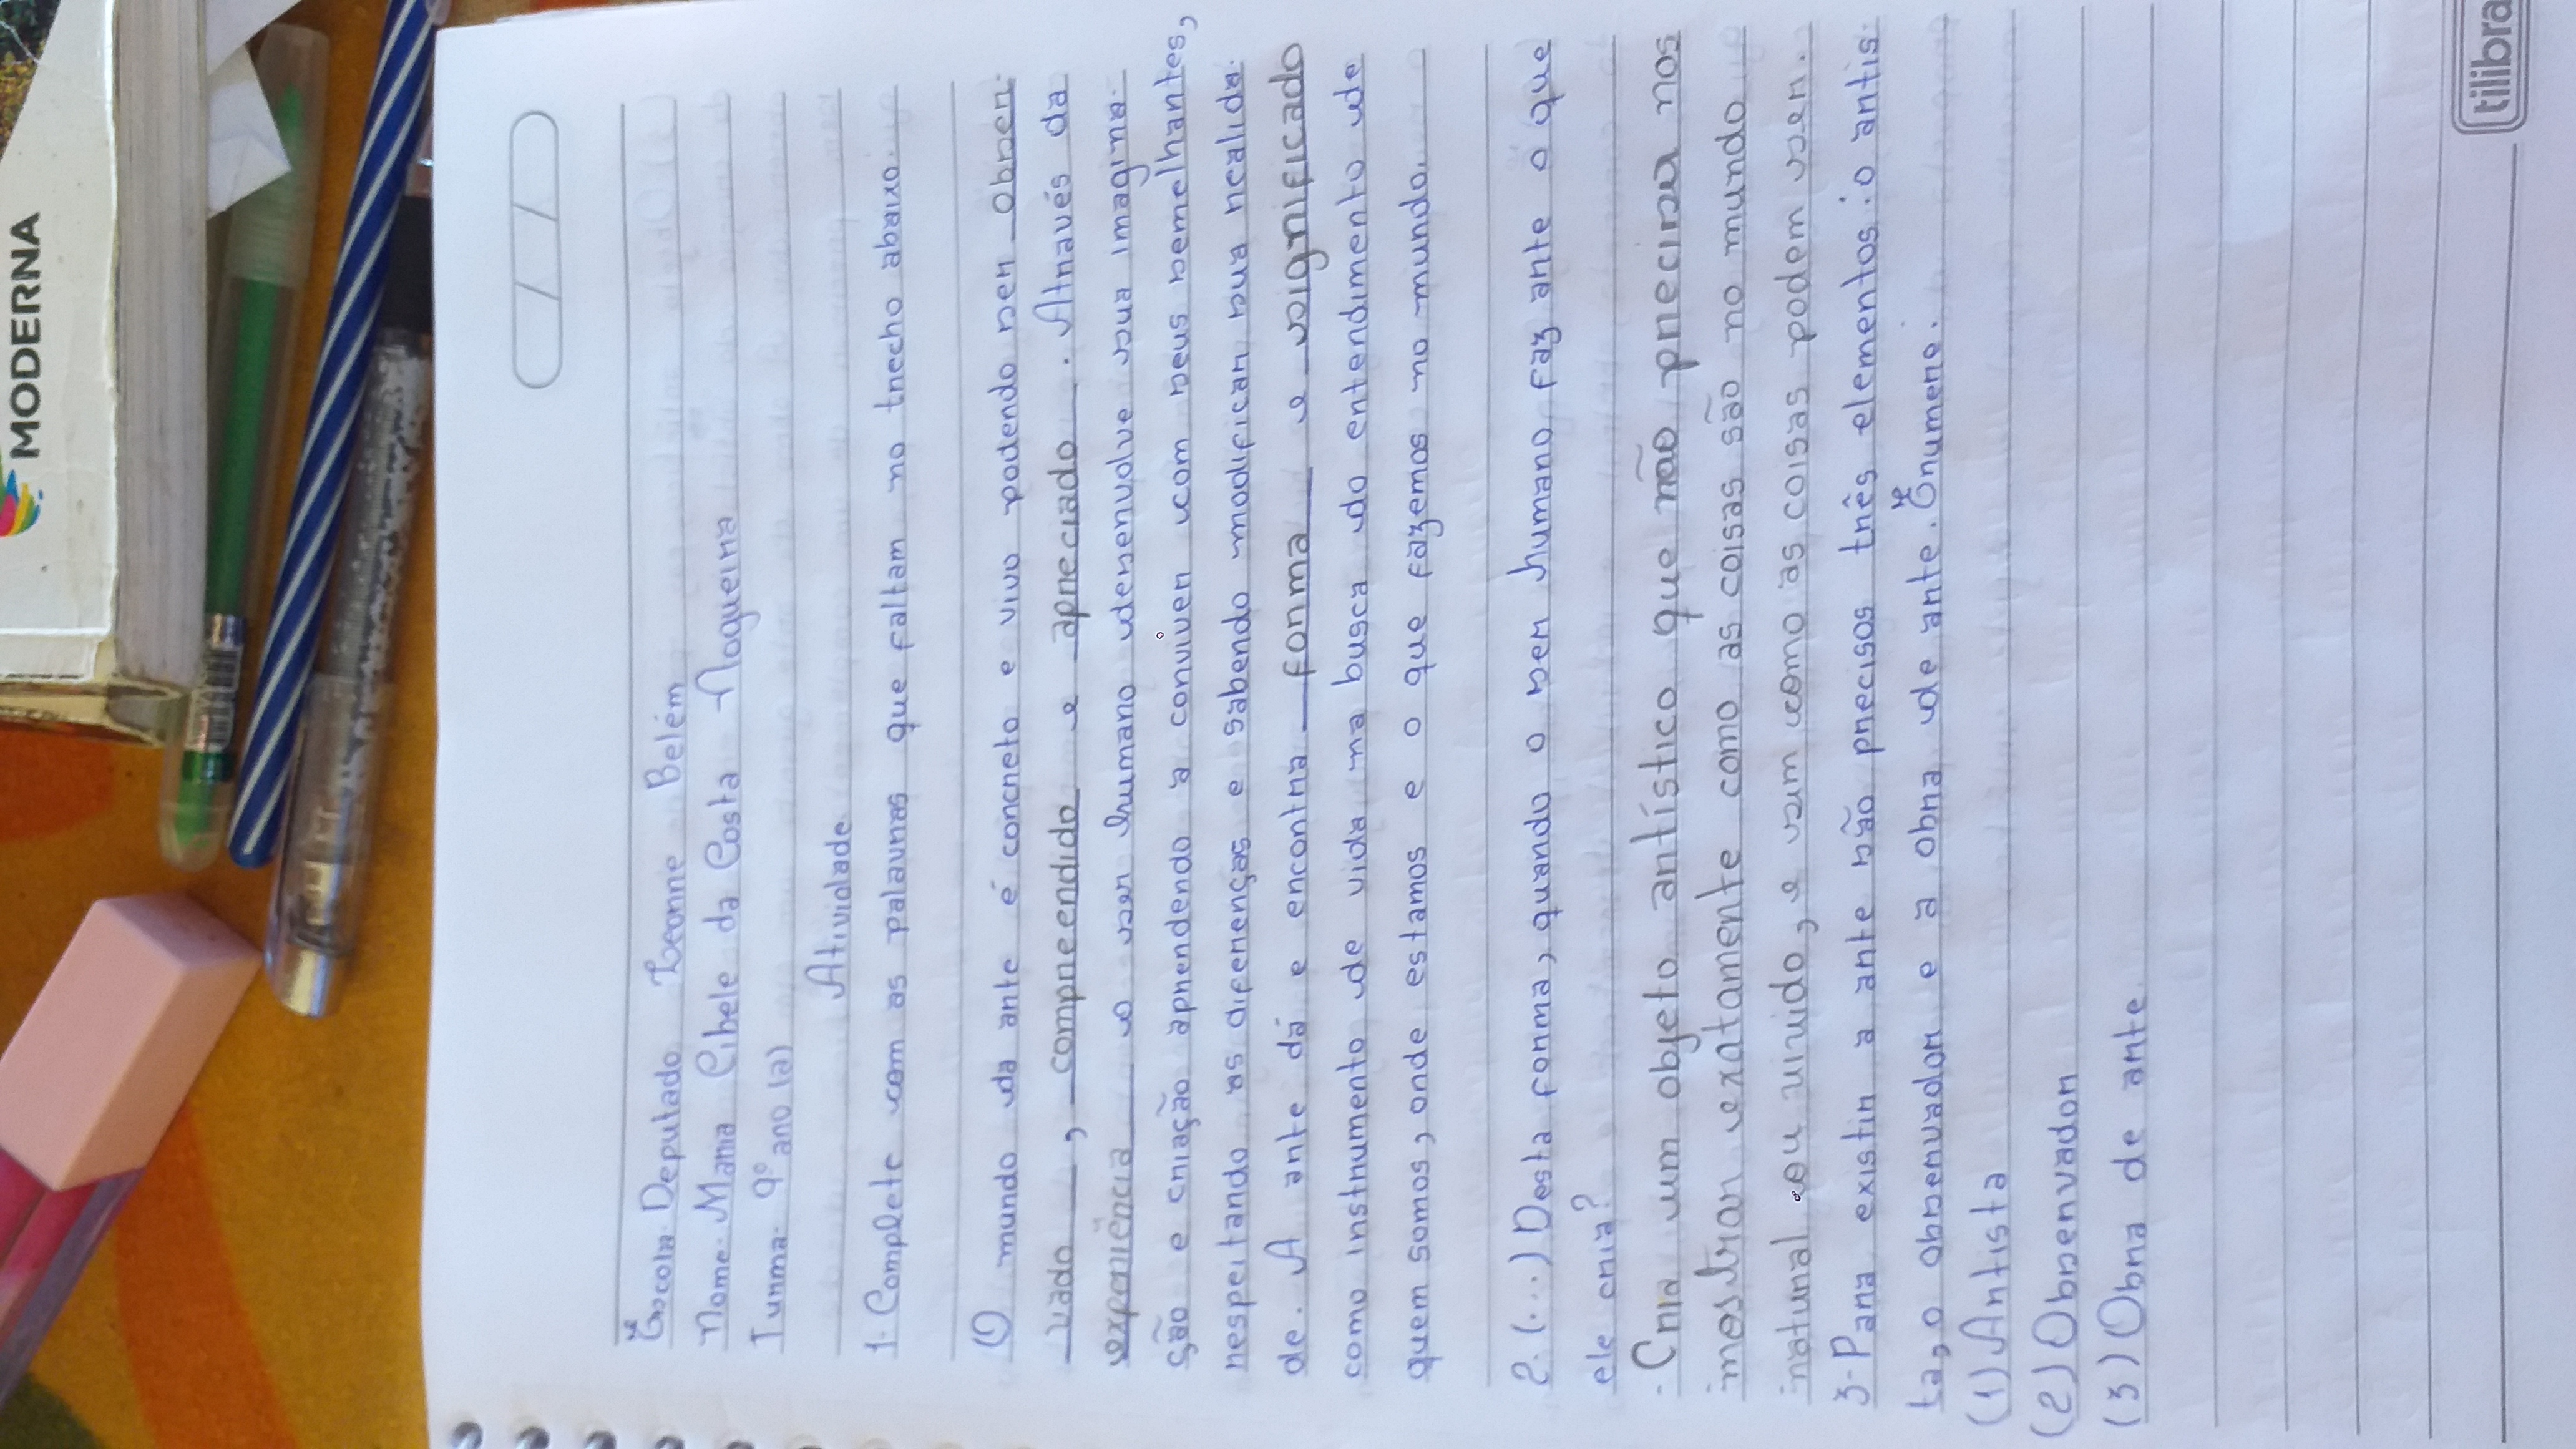 MODERNA
Escola Deputado Leonne Belém
Nome- Maria Cibele da Costa Nogueira
Turma- 9º ano (a)
Atividade
1- Complete com as palavras que faltam no trecho abaixo.
O mundo da arte é concreto e vivo podendo ser obser-
vado, compreendido e apreciado. Através da
experiência o ser humano desenvolve sua imagina-
ção e criação aprendendo a conviver com seus semelhantes,
respeitando as diferenças e sabendo modificar sua realida-
de. A arte dá e encontra forma e significado
como instrumento de vida na busca do entendimento de
quem somos, onde estamos e o que fazemos no mundo.
2. (...) Desta forma, quando o ser humano faz arte o que
ele cria?
- Cria um objeto artístico que não precisa nos
mostrar exatamente como as coisas são no mundo
natural ou vivido, e sim como as coisas podem ser.
3- Para existir a arte são precisos três elementos: o artis-
ta, o observador e a obra de arte. Enumere:
(1) Artista
(2) Observador
(3) Obra de arte
tilibra